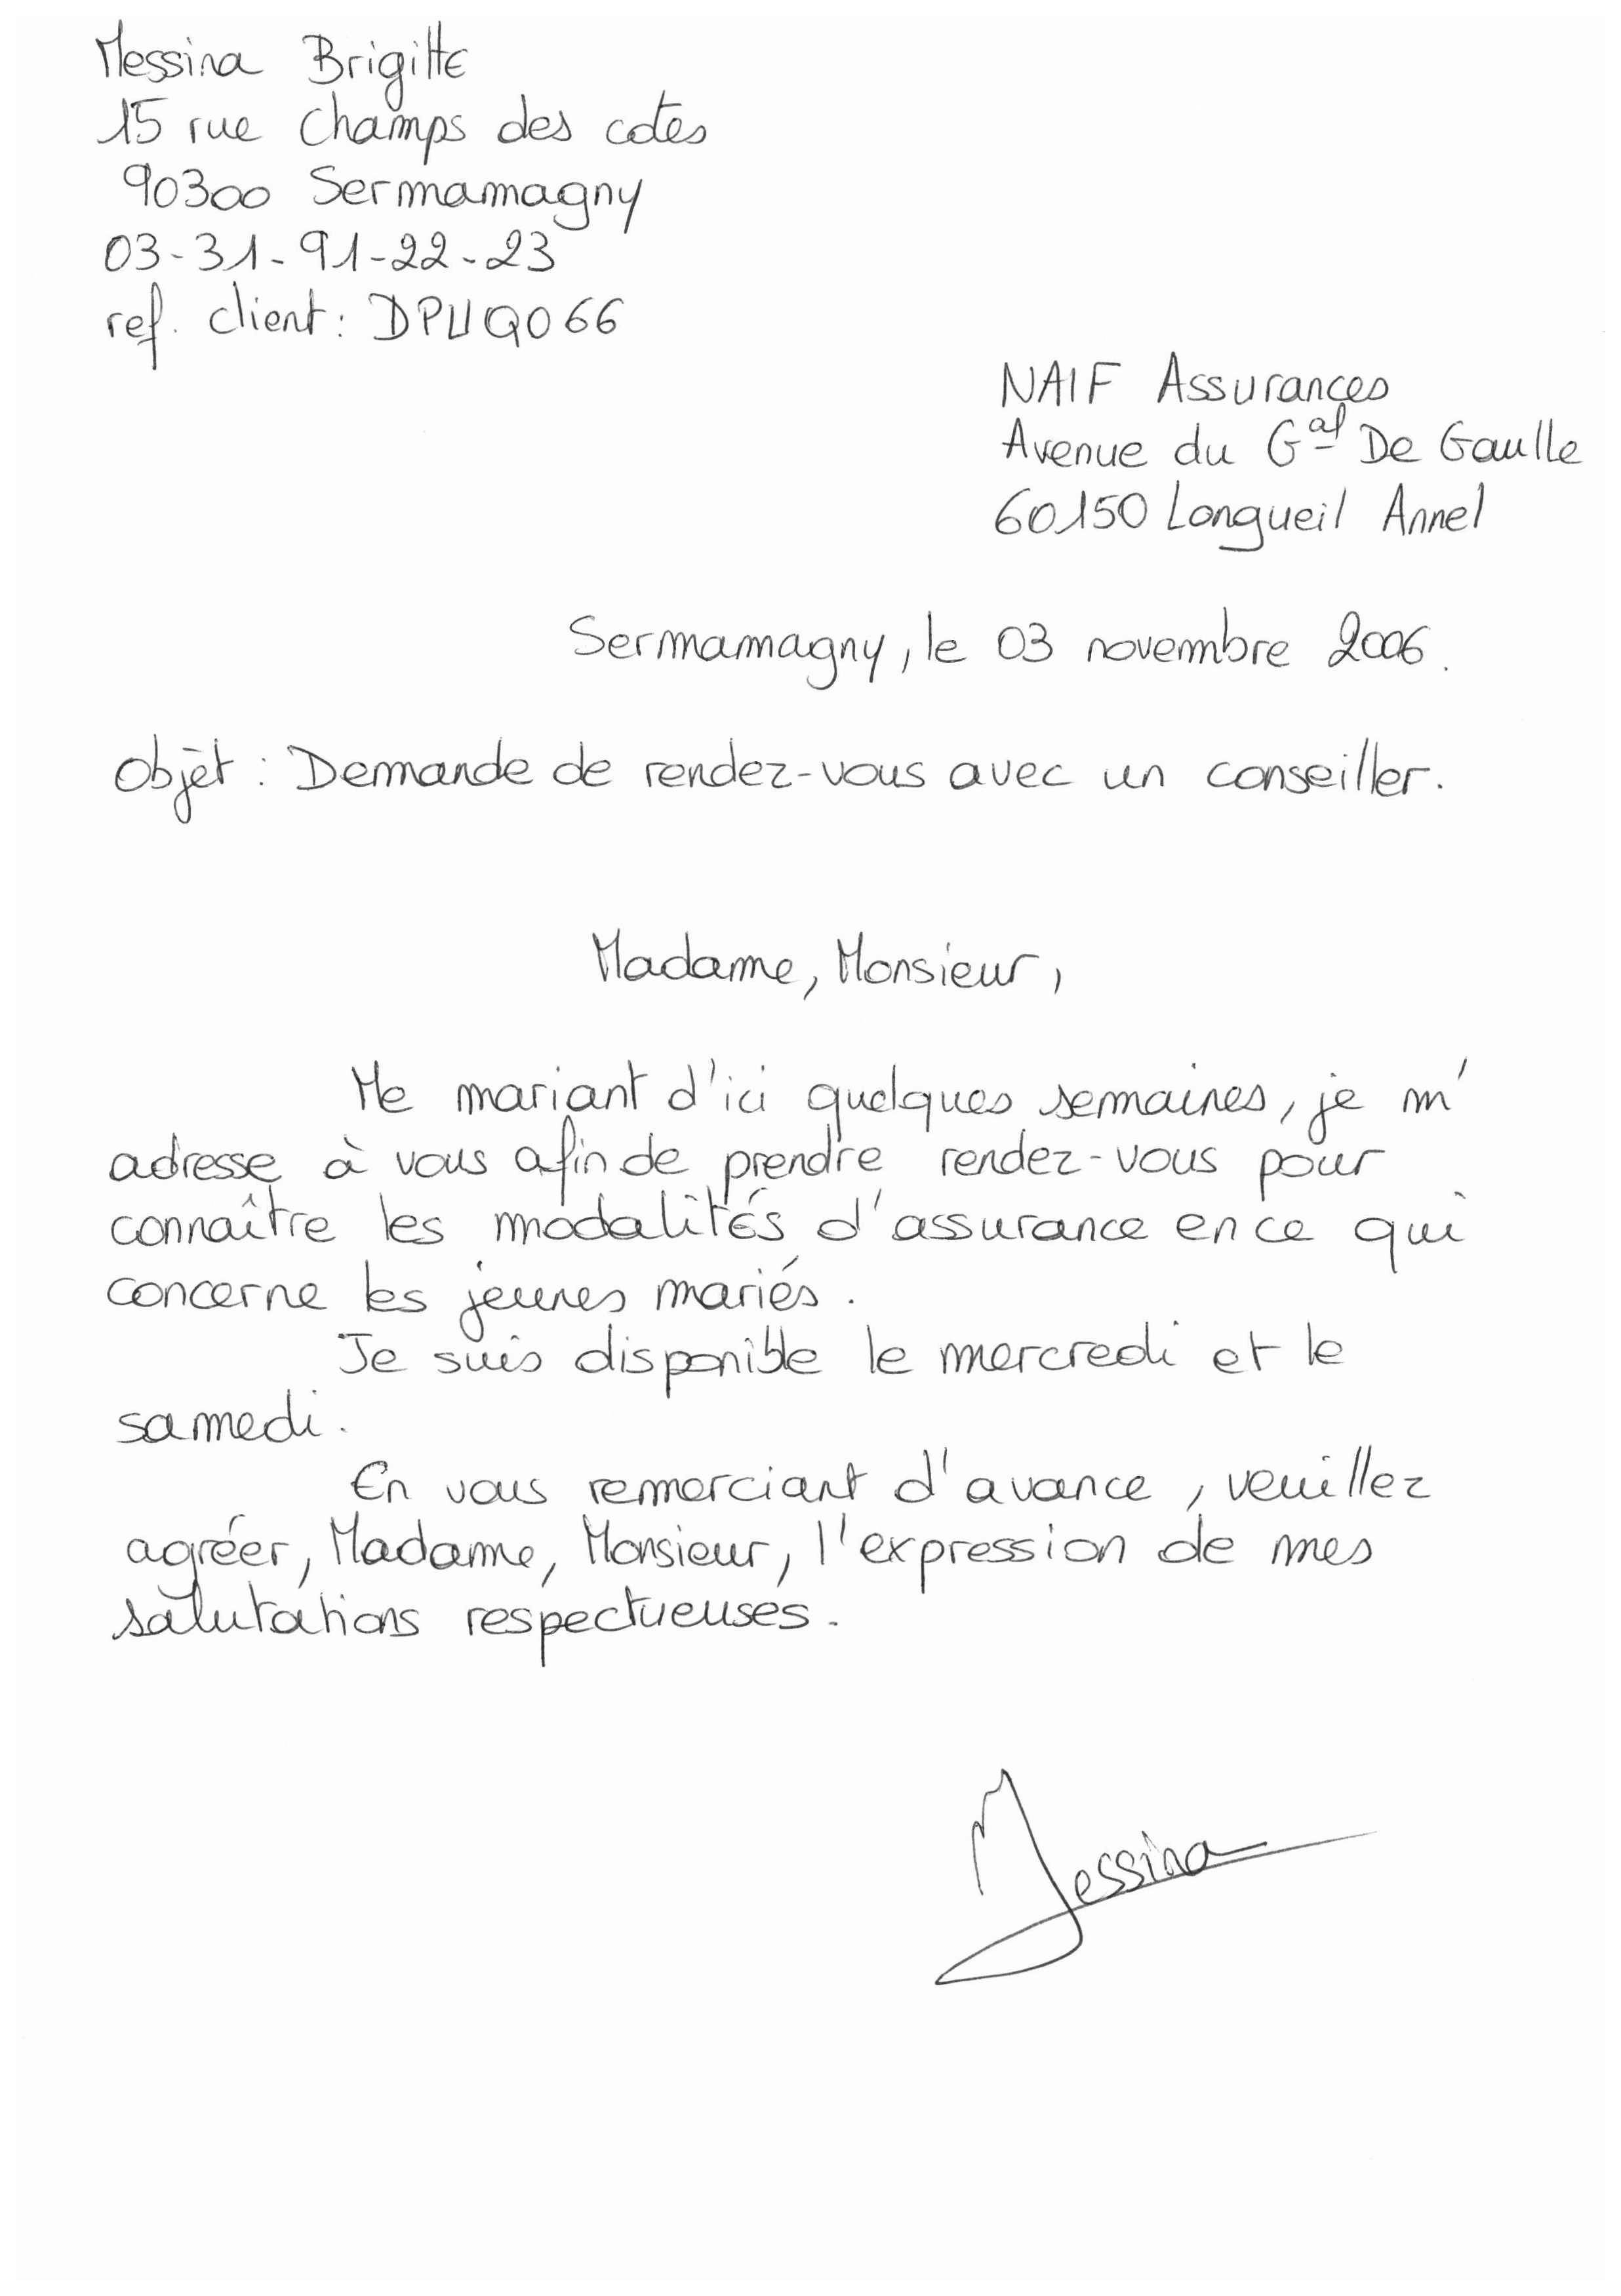 Messina Brigitte
15 rue Champs des cotes
90300 Sermamagny
03-31-91-22-23
ref. client : DPUQ066
NAIF Assurances
Avenue du Gal De Gaulle
60150 Longueil Annel
Sermamagny, le 03 novembre 2006.
Objèt : Demande de rendez-vous avec un conseiller.
Madame, Monsieur,
Me mariant d'ici quelques semaines, je m'
adresse à vous afin de prendre rendez-vous pour
connaître les modalités d'assurance en ce qui
concerne les jeunes mariés.
Je suis disponible le mercredi et le
samedi.
En vous remerciant d'avance, veuillez
agréer, Madame, Monsieur, l'expression de mes
salutations respectueuses.
Messina